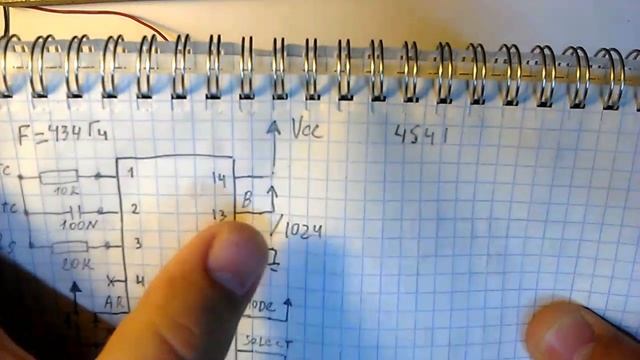 F=434Гц
Vcc
4541
TC
1
14
10K
B
TC
2
13
100N
/1024
S
3
20K
x
4
AR
MODE
SELECT